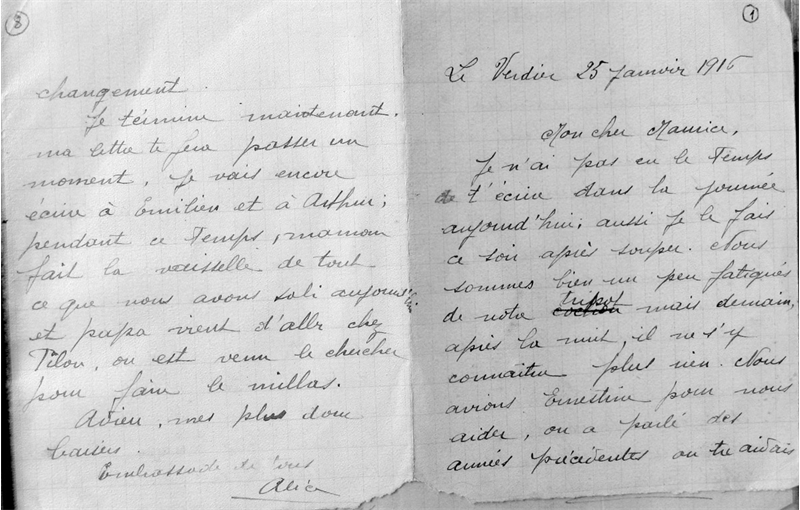 8
changement.
Je términe maintenant.
ma lettre te fera passer un
moment. Je vais encore
écrire à Emilien et à Arthur;
pendant ce Temps, maman
fait la vaisselle de tout
ce que nous avons sali aujourd'hui
et papa vient d'aller chez
Pilon, on est venu le chercher
pour faire le millas.
Adieu, mes plus doux
baisers.
Embrassade de tous
Alice
1
Le Verdier 25 Janvier 1916
Mon cher Maurice,
Je n'ai pas eu le Temps
de t'écrire dans la journée
aujourd'hui; aussi je le fais
ce soir après souper. Nous
sommes bien un peu fatigués
de notre tripot mais demain,
après la nuit, il ne s'y
connaîtra plus rien. Nous
avions Ernestine pour nous
aider, on a parlé des
années précédentes où tu aidais